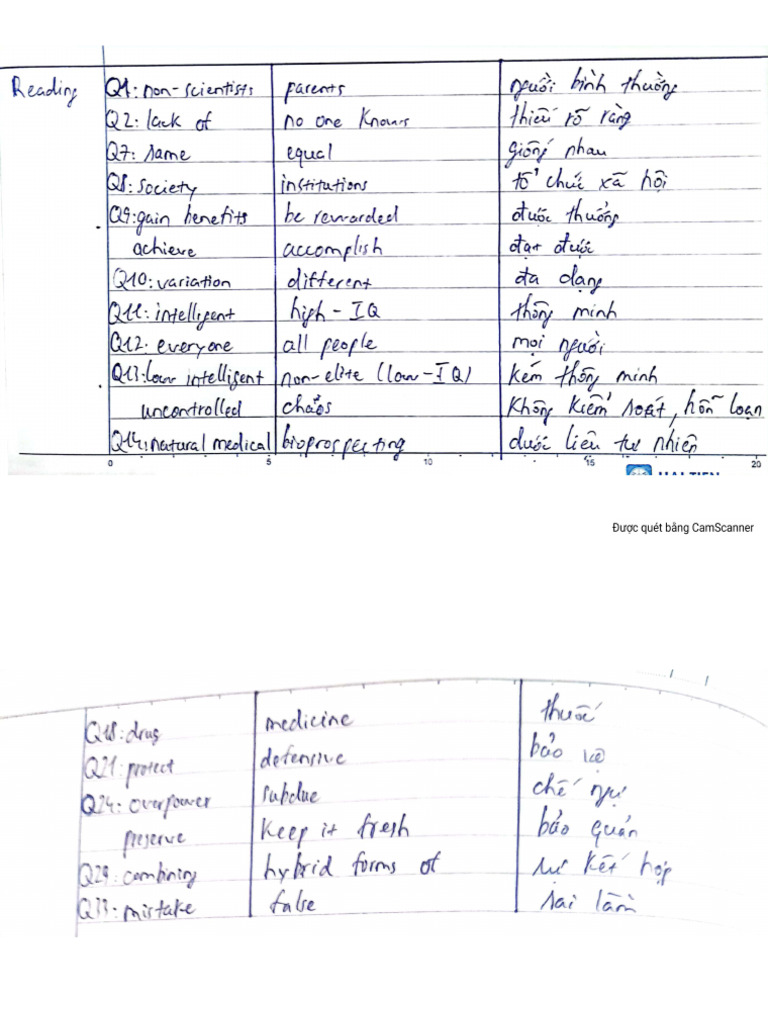 Reading Q1: non-scientists parents người bình thường
Q2: lack of no one knows thiếu rõ ràng
Q7: same equal giống nhau
Q8: society institutions tổ chức xã hội
Q9: gain benefits be rewarded được thưởng
achieve accomplish đạt được
Q10: variation different đa dạng
Q11: intelligent high-IQ thông minh
Q12: everyone all people mọi người
Q13: low intelligent non-elite (low-IQ) kém thông minh
uncontrolled chaos không kiểm soát, hỗn loạn
Q14: natural medical bioprospecting dược liệu tự nhiên
0 5 10 15 20
Được quét bằng CamScanner
Q18: drug medicine thuốc
Q21: protect defensive bảo vệ
Q24: overpower subdue chế ngự
preserve keep it fresh bảo quản
Q29: combining hybrid forms of sự kết hợp
Q33: mistake false sai lầm